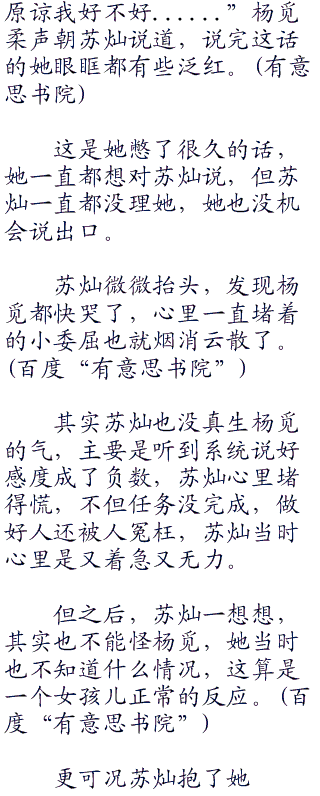 原谅我好不好......”杨觅
柔声朝苏灿说道，说完这话
的她眼眶都有些泛红。(有意
思书院)
这是她憋了很久的话，
她一直都想对苏灿说，但苏
灿一直都没理她，她也没机
会说出口。
苏灿微微抬头，发现杨
觅都快哭了，心里一直堵着
的小委屈也就烟消云散了。
(百度“有意思书院”)
其实苏灿也没真生杨觅
的气，主要是听到系统说好
感度成了负数，苏灿心里堵
得慌，不但任务没完成，做
好人还被人冤枉，苏灿当时
心里是又着急又无力。
但之后，苏灿一想想，
其实也不能怪杨觅，她当时
也不知道什么情况，这算是
一个女孩儿正常的反应。(百
度“有意思书院”)
更可况苏灿抱了她